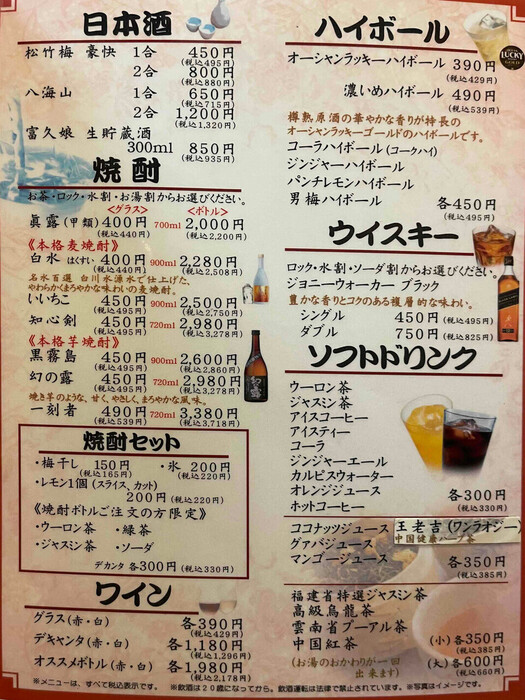 日本酒
松竹梅 豪快 1合 450円
(税込495円)
2合 800円
(税込880円)
八海山 1合 650円
(税込715円)
2合 1,200円
(税込1,320円)
富久娘 生貯蔵酒
300ml 850円
(税込935円)
焼酎
お茶・ロック・水割・お湯割からお選びください。
<グラス> <ボトル>
眞露(甲類) 400円 700ml 2,000円
(税込440円) (税込2,200円)
《本格麦焼酎》
白水 はくすい 400円 900ml 2,280円
(税込440円) (税込2,508円)
名水百選 白川水源水で仕上げた、
やわらかくまろやかな味わいの麦焼酎。
いいちこ 450円 900ml 2,500円
(税込495円) (税込2,750円)
知心剣 450円 720ml 2,980円
(税込495円) (税込3,278円)
《本格芋焼酎》
黒霧島 450円 900ml 2,600円
(税込495円) (税込2,860円)
幻の露 450円 720ml 2,980円
(税込495円) (税込3,278円)
焼き芋のような、甘く、やさしく、まろやかな風味。
一刻者 490円 720ml 3,380円
(税込539円) (税込3,718円)
焼酎セット
・梅干し 150円 ・氷 200円
(税込165円) (税込220円)
・レモン1個(スライス、カット)
200円(税込220円)
《焼酎ボトルご注文の方限定》
・ウーロン茶 ・緑茶
・ジャスミン茶 ・ソーダ
デカンタ 各300円(税込330円)
ワイン
グラス(赤・白) 各390円
(税込429円)
デキャンタ(赤・白) 各1,180円
(税込1,296円)
オススメボトル(赤・白) 各1,980円
(税込2,178円)
※メニューは、すべて税込表示です。 ※飲酒は20歳になってから。飲酒運転は法律で禁止されています。 ※写真はイメージです。
ハイボール
LUCKY
GOLD
オーシャンラッキーハイボール 390円
(税込429円)
濃いめハイボール 490円
(税込539円)
樽熟原酒の華やかな香りが特長の
オーシャンラッキーゴールドのハイボールです。
コーラハイボール(コークハイ)
ジンジャーハイボール
パンチレモンハイボール
男梅ハイボール 各450円
(税込495円)
ウイスキー
ロック・水割・ソーダ割からお選びください。
ジョニーウォーカー ブラック
豊かな香りとコクのある複層的な味わい。
シングル 450円(税込495円)
ダブル 750円(税込825円)
ソフトドリンク
ウーロン茶
ジャスミン茶
アイスコーヒー
アイスティー
コーラ
ジンジャーエール
カルピスウォーター
オレンジジュース 各300円
ホットコーヒー (税込330円)
ココナッツジュース 王老吉(ワンラオジー)
グァバジュース 中国健康ハーブ茶
マンゴージュース 各350円
(税込385円)
福建省特選ジャスミン茶
高級烏龍茶
雲南省プーアル茶
中国紅茶 (小)各350円
(税込385円)
(お湯のおかわりが一回 (大)各600円
出来ます) (税込660円)